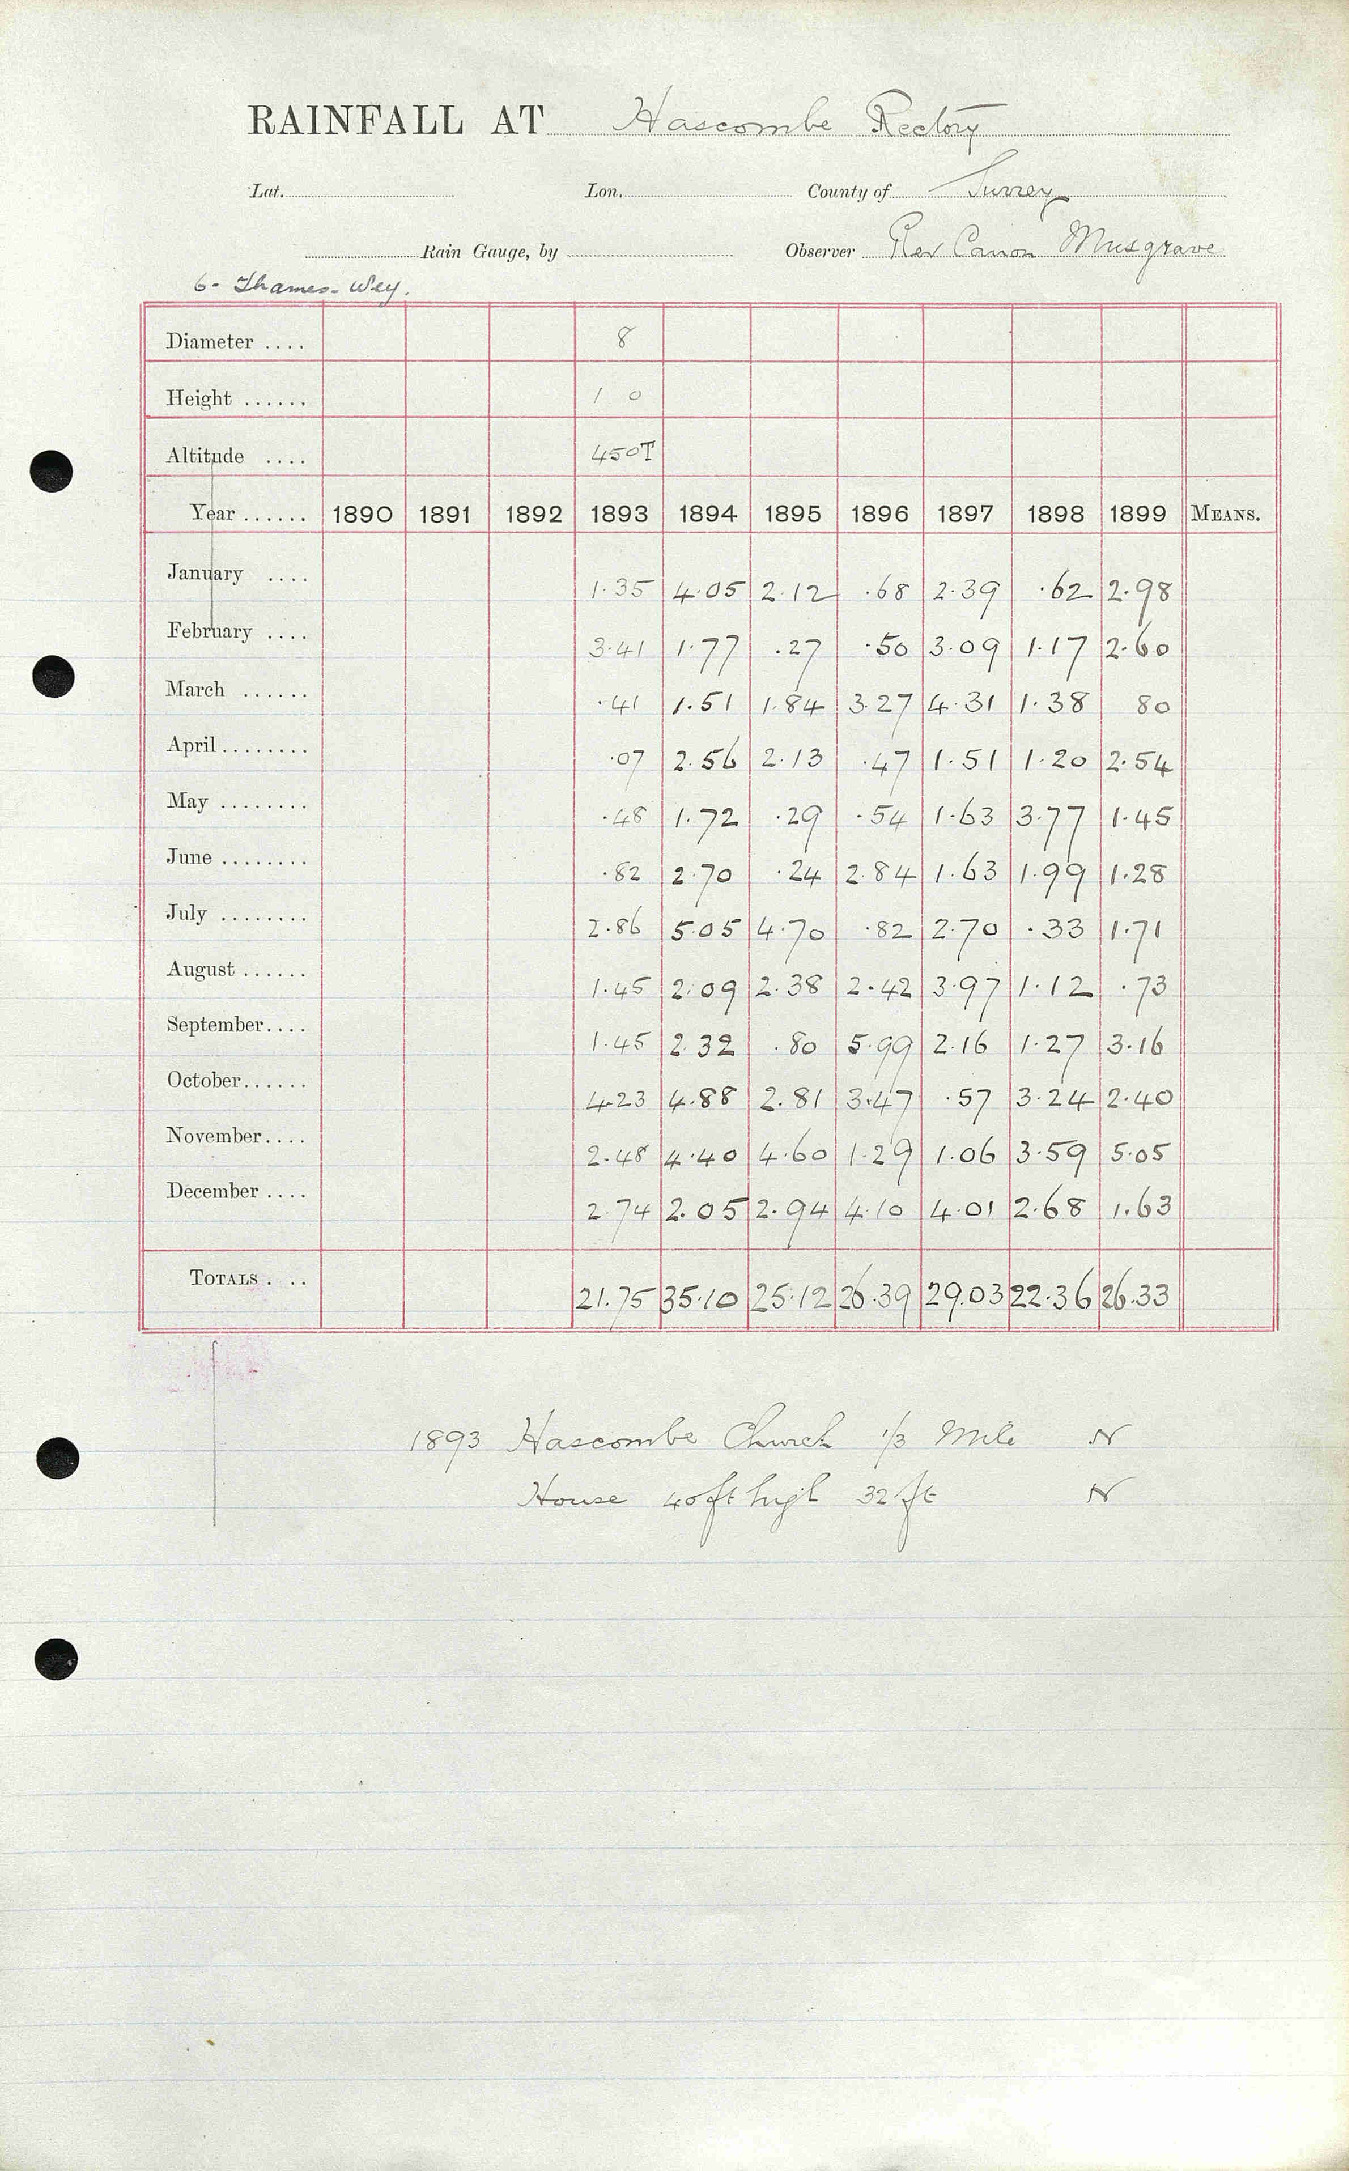 RAINFALL AT Hascombe Rectory
Lat. Lon. County of Surrey
Rain Gauge, by Observer Rev Canon Musgrave
6- Thames-Wey.
Diameter .... 8
Height ...... 1 0
Altitude .... 450T
Year ...... 1890 1891 1892 1893 1894 1895 1896 1897 1898 1899 MEANS.
January .... 1.35 4.05 2.12 .68 2.39 .62 2.98
February .... 3.41 1.77 .27 .50 3.09 1.17 2.60
March ...... .41 1.51 1.84 3.27 4.31 1.38 80
April........ .07 2.56 2.13 .47 1.51 1.20 2.54
May ........ .48 1.72 .29 .54 1.63 3.77 1.45
June ........ .82 2.70 .24 2.84 1.63 1.99 1.28
July ........ 2.86 5.05 4.70 .82 2.70 .33 1.71
August ...... 1.45 2.09 2.38 2.42 3.97 1.12 .73
September.... 1.45 2.32 .80 5.99 2.16 1.27 3.16
October...... 4.23 4.88 2.81 3.47 .57 3.24 2.40
November.... 2.48 4.40 4.60 1.29 1.06 3.59 5.05
December .... 2.74 2.05 2.94 4.10 4.01 2.68 1.63
TOTALS . .. 21.75 35.10 25.12 26.39 29.03 22.36 26.33
1893 Hascombe Church 1/3 Mile N
House 40ft high 32 ft N